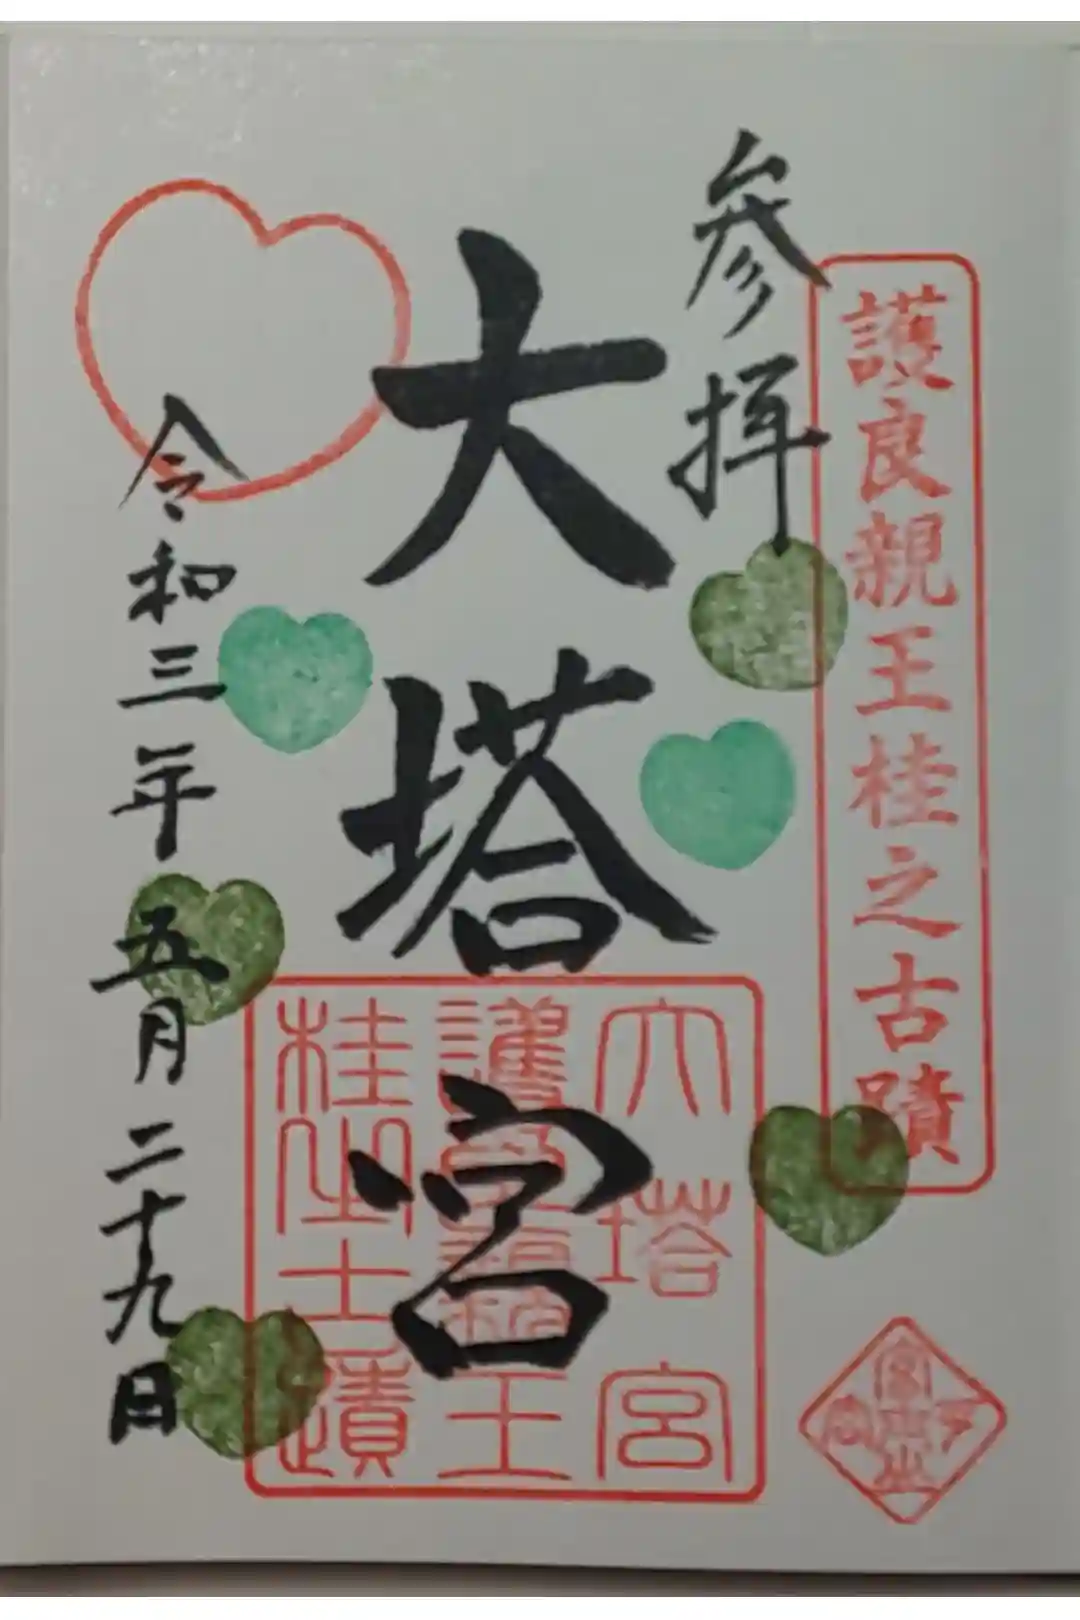 護良親王桂之古蹟
参拝
大塔宮
大塔宮
護良親王
桂之古蹟
令和三年五月二十九日